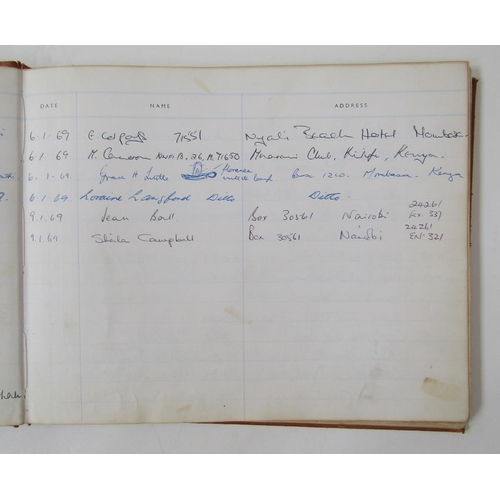 DATE NAME ADDRESS
6.1.69 71551 Nyali Beach Hotel Mombasa
6.1.69 M. Cameron M71650 Mnarani Club, Kilifi, Kenya.
6.1.69. Grace H Box 1210. Mombasa. Kenya
6.1.69. Lorraine Langford Ditto Ditto.
9.1.69 Jean Ball Box 30561 Nairobi 24261 Ex. 331
9.1.69 Sheila Campbell Box 30561 Nairobi 24261 Ext. 321